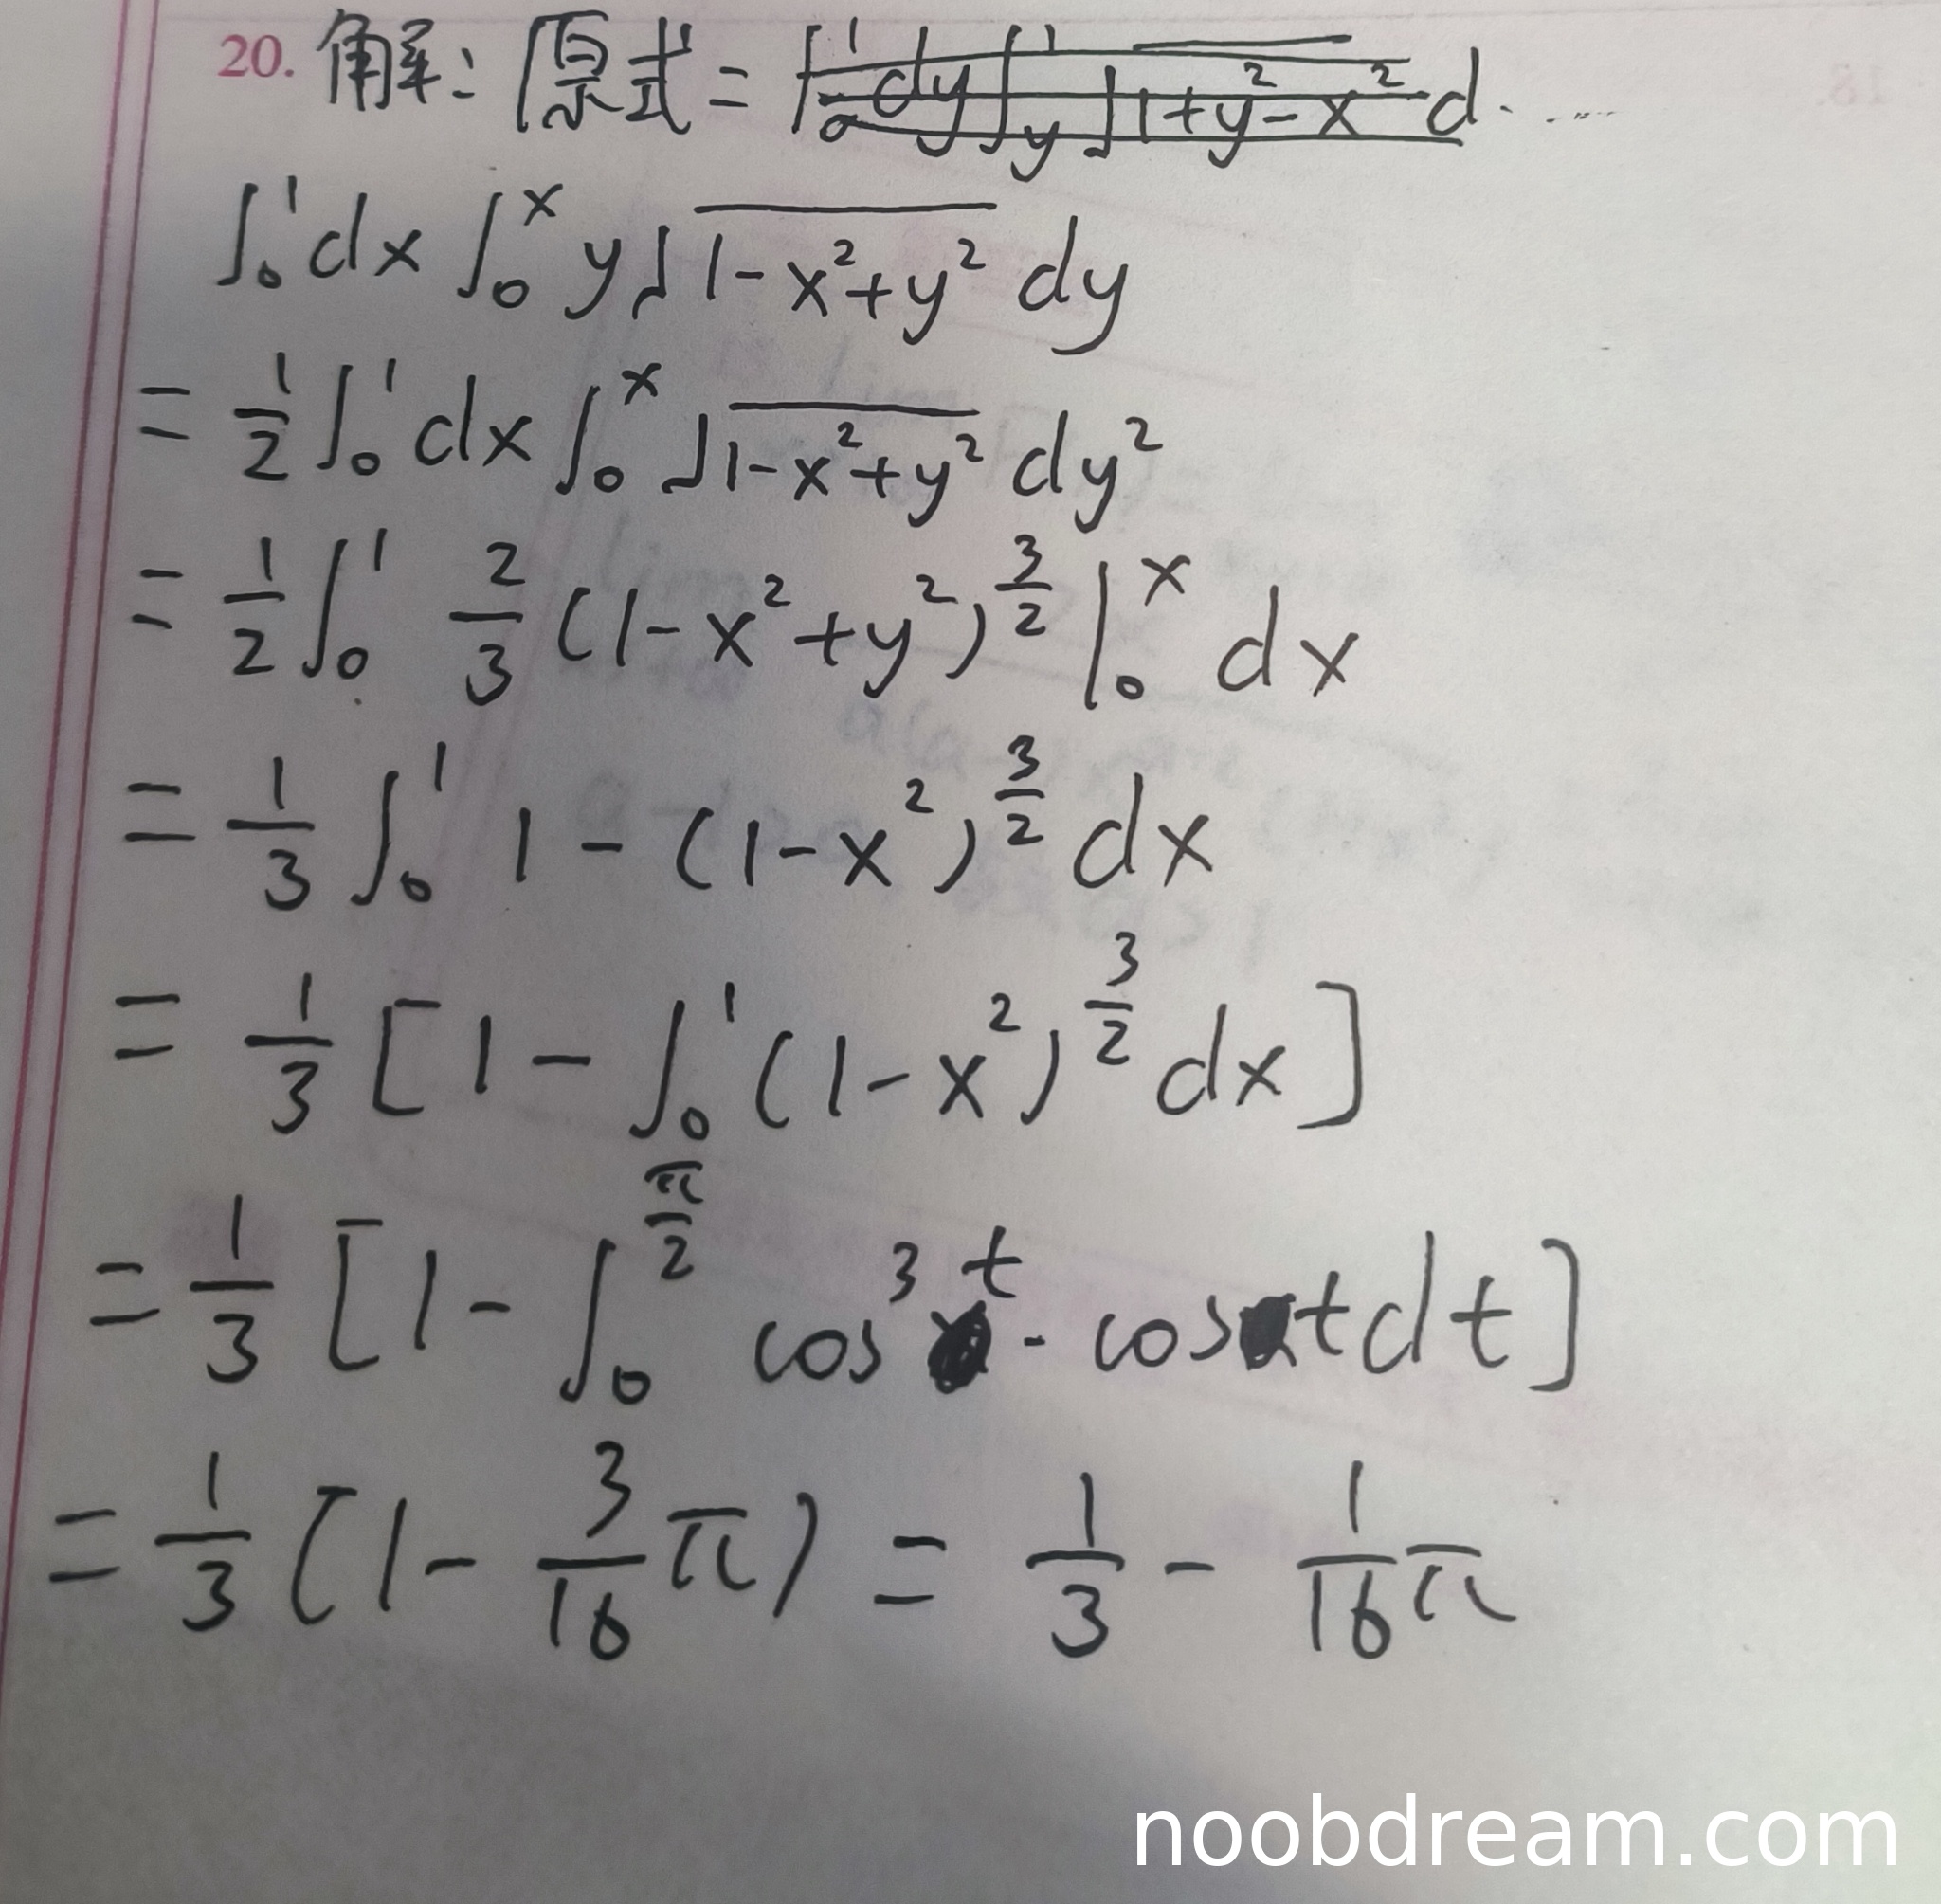 20. 解: 原式 = ∫₀¹ dy ∫_y¹ √(1+y²-x²) d.....
∫₀¹ dx ∫₀ˣ y√(1-x²+y²) dy
= 1/2 ∫₀¹ dx ∫₀ˣ √(1-x²+y²) dy²
= 1/2 ∫₀¹ 2/3 (1-x²+y²)^(3/2) |₀ˣ dx
= 1/3 ∫₀¹ 1 - (1-x²)^(3/2) dx
= 1/3 [1 - ∫₀¹ (1-x²)^(3/2) dx]
= 1/3 [1 - ∫₀^(π/2) cos³t · cost dt]
= 1/3 (1 - 3/16 π) = 1/3 - 1/16 π
noobdream.com